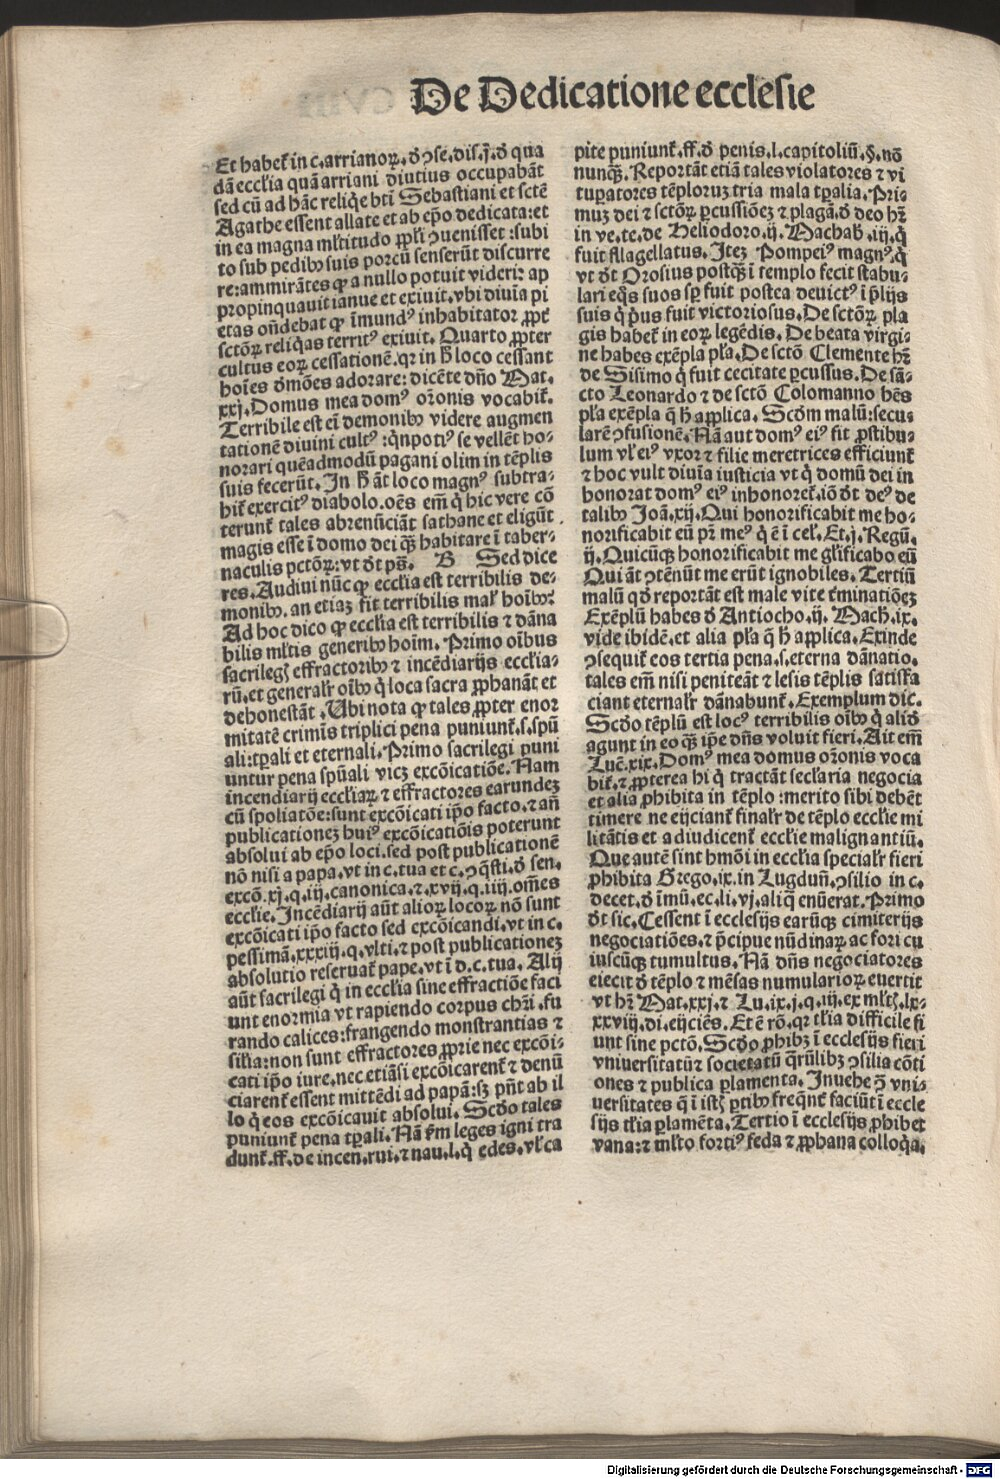 De Dedicatione ecclesie
Et habet᷑ in c.arrianoꝝ.ď ↄse.dis.j.ď qua
dā eccľia quā arriani diutius occupabāt
sed cū ad hāc reliq̄e bti Sebastiani et sctē
Agathe essent allate et ab ep̄o dedicata:et
in ea magna mľtitudo ꝓpľi ↄuenisset:subi
to sub pedibꝰ suis porcū senserūt discurre
re:ammirātes ꝙ a nullo potuit videri: ap
propinquauit ianue et exiuit.vbi diuīa pi
etas oñdebat ꝙ īmundꝰ inhabitator ꝓpť
sctōꝝ reliq̄as territꝰ exiuit. Quarto ꝓpter
cultus eoꝝ cessationē.qr in ħ loco cessant
hoīes ďmōes adorare: dicēte dño Mat.
xxj.Domus mea domꝰ orōnis vocabit᷑.
Terribile est eī demonibꝰ videre augmen
tationē diuini cultꝰ:qñpotiꝰ se vellēt ho-
norari quēadmodū pagani olim in tēplis
suis fecerūt.In ħ āt loco magnꝰ subtra-
hit᷑ exercitꝰ diabolo.oēs em̄ q̇ hic vere cō
terunt᷑ tales abrenūciāt sathane et eligūt
magis esse ī domo dei qꝫ habitare ī taber-
naculis pctōꝝ:vt ďt ps̄. B Sed dice
res.Audiui nūc ꝙ eccľia est terribilis de-
monibꝰ.an etiaꝫ sit terribilis maľ hoībꝰ?
Ad hoc dico ꝙ eccľia est terribilis ⁊ dāna
bilis mľtis generibꝰ hoīm. Primo oībus
sacrilegꝭ effractoribꝰ ⁊ incēdiarijs eccľia-
rū.et generaľr oībꝰ q̇ loca sacra ꝓphanāt et
dehonestāt.Ubi nota ꝙ tales ꝓpter enor
mitatē crimīs triplici pena puniunt᷑.s.spū
ali:tꝑali et eternali.Primo sacrilegi puni
untur pena spūali vicꝫ excōicatiōe.Nam
incendiarij eccľiaꝝ ⁊ effractores earundeꝫ
cū spoliatōe:sunt excōicati ip̄o facto.⁊ añ
publicationeꝫ huiꝰ excōicatiōis poterunt
absolui ab ep̄o loci.sed post publicationē
nō nisi a papa.vt in c.tua et c.ↄq̄sti.ď sen.
excō.xj.q.iij.canonica.⁊.xvij.q.iiij.om̄es
eccľie.Incēdiarij aūt alioꝝ locoꝝ nō sunt
excōicati ip̄o facto sed excōicandi.vt in c.
pessimā.xxxiij.q.vlti.⁊ post publicationeꝫ
absolutio reseruat᷑ pape.vt ī d.c.tua. Alij
aūt sacrilegi q̇ in eccľia sine effractiōe faci
unt enormia vt rapiendo corpus chri.fu
rando calices:frangendo monstrantias ⁊
siľia:non sunt effractores ꝓprie nec excōi-
cati ip̄o iure.nec etiāsi excōicarent᷑ ⁊ denū
ciarent᷑ essent mittēdi ad papā:sꝫ pn̄t ab il
lo q̇ eos excōicauit absolui. Scďo tales
puniunt᷑ pena tꝑali.Nā ẜm leges igni tra
dunt᷑.ff.de incen.rui.⁊ nau.l.q̇ edes.vľ ca
pite puniunt᷑.ff.ď penis.l.capitoliū.§.nō
nunqꝫ.Reportāt etiā tales violatores ⁊ vi
tuꝑatores tēploruꝫ tria mala tꝑalia.Pri-
muꝫ dei ⁊ sctōꝝ ꝑcussiōeꝫ ⁊ plagā.ď deo hr̄
in ve.te.de Heliodoro.ij.Machab.iij.q̇
fuit flagellatus.Iteꝫ Pompeiꝰ magnꝰ.q̇
vt ďt Orosius postqꝫ ī templo fecit stabu-
lari eq̄s suos sꝑ fuit postea deuictꝰ ī p̄lijs
suis q̇ p̓us fuit victoriosus.De sctōꝝ pla
gis habet᷑ in eoꝝ legēdis.De beata virgi-
ne habes exēpla pľa.De sctō Clemente hr̄
de Sisimo q̇ fuit cecitate ꝑcussus.De sā-
cto Leonardo ⁊ de sctō Colomanno hēs
pľa exēpla q̄ ħ applica. Scďm malū:secu-
larē ↄfusionē.Nā aut domꝰ eiꝰ fit ꝓstibu-
lum vľ eiꝰ vxor ⁊ filie meretrices efficiunt᷑
⁊ hoc vult diuīa iusticia vt q̇ domū dei in
honorat domꝰ eiꝰ inhonoret᷑.iō ďt deꝰ de
talibꝰ Joā.xij.Qui honorificabit me ho-
norificabit eū pr̄ meꝰ q̇ ē ī cel᷑.Et.j.Regū.
ij.Quicūqꝫ honorificabit me gľificabo eū
Qui āt ↄtēnūt me erūt ignobiles.Tertiū
malū qď reportāt est male vite ťminatiōeꝫ
Exēplū habes ď Antiocho.ij.Mach.ix.
vide ibidē.et alia pľa q̄ ħ applica.Exinde
ↄsequit᷑ eos tertia pena.s.eterna dānatio.
tales em̄ nisi peniteāt ⁊ lesis tēplis satisfa
ciant eternaľr dānabunt᷑.Exemplum dic.
Scďo tēplū est locꝰ terribilis oībꝰ q̇ aliď
agunt in eo qꝫ ip̄e dñs voluit fieri.Ait em̄
Luc̄.xix.Domꝰ mea domus orōnis voca
bit᷑.⁊ ꝓpterea hi q̇ tractāt secľaria negocia
et alia ꝓhibita in tēplo:merito sibi debēt
timere ne eijciant᷑ finaľr de tēplo eccľie mi
litātis et adiudicent᷑ eccľie malignantiū.
Que autē sint hmōi in eccľia speciaľr fieri
ꝓhibita Grego.ix.in Lugduñ.ↄsilio in c.
decet.ď imū.ec.li.vj.aliq̄ enūerat.Primo
ďt sic.Cessent ī ecclesijs earūqꝫ cimiterijs
negociatiōes.⁊ p̄cipue nūdinaꝝ ac fori cu
iuscūqꝫ tumultus.Nā dñs negociatores
eiecit ď tēplo ⁊ mēsas numularioꝝ euertit
vt hr̄ Mat.xxj.⁊ Lu.ix.j.q.iij.ex mľtꝭ.lx-
xxviij.di.eijciēs.Et ē rō.qr tľia difficile fi
unt sine pctō.Scďo ꝓhibꝫ ī ecclesijs fieri
vniuersitatū⁊ societatū q̄rūlibꝫ ↄsilia cōti
ones ⁊ publica ꝑlamenta. Inuehe ↄ̄ vni-
uersitates q̄ ī istꝭ ꝑtibꝰ freq̄nt᷑ faciūt ī eccle
sijs tľia ꝑlamēta.Tertio ī ecclesijs ꝓhibet
vana:⁊ mľto fortiꝰ feda ⁊ ꝓphana colloq̄a.
Digitalisierung gefördert durch die Deutsche Forschungsgemeinschaft - DFG